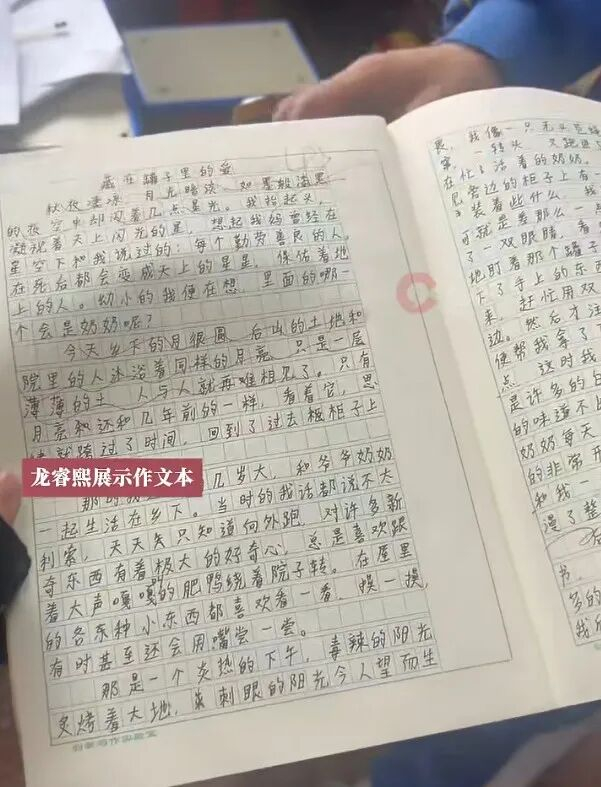 藏在罐子里的爱
秋夜凄凉，月光暗淡，如墨般漆黑
的夜空中却闪着几点星光。我抬起头，
凝视着天上闪光的星，想起我妈曾经在
星空下和我说过的：每个勤劳善良的人，
在死后都会变成天上的星星，保佑着地
上的人。幼小的我便在想，里面的哪一
个会是奶奶呢？
今天乡下的月很圆，后山的土地和
院里的人沐浴着同样的月亮，只是一层
薄薄的土，人与人就再难相见了。只有
月亮和还和几年前的一样，看着它，思
绪就跨过了时间，回到了过去板柜子上
龙睿熙展示作文本
几岁大，和爷爷奶奶
一起生活在乡下。当时的我话都说不大
利索，天天矢只知道向外跑，对许多新
奇东西有着极大的好奇心，总是喜欢跟
着大声嘎嘎的肥鸭绕着院子转。在屋里
的各东种小东西都喜欢看一看，摸一摸，
有时甚至还会用嘴尝一尝。
那是一个炎热的下午，毒辣的阳光
炙烤着大地，刺眼的阳光令人望而生
畏，我像一只无头苍蝇
一转头，又跑进
在忙活着的奶奶。
旁边的柜子上有一
装着些什么，我
可就是差那么一点
了一双眼睛，看
地盯着那个罐子
下了手上的东西
来，赶忙用双
边。然后才注
便帮我拿了下
点，这时我
是许多的白
的味道不比
奶奶每天
的非常开
和我一
漫了整
书，
多的
我后